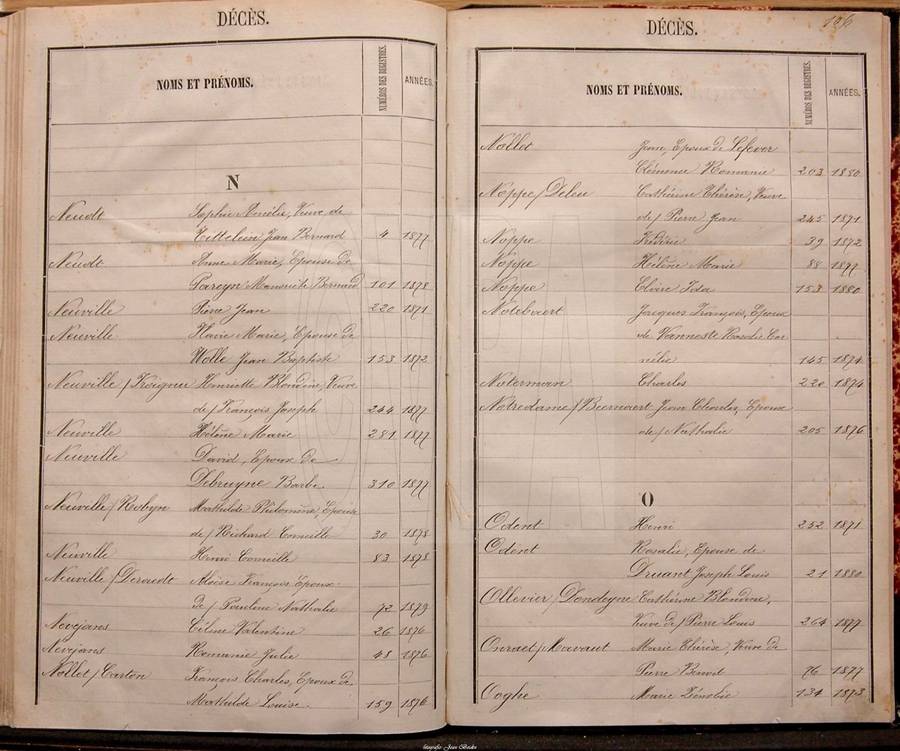 DÉCÈS.
NOMS ET PRÉNOMS. NUMÉROS DES REGISTRES. ANNÉES.
N
Neudt Sophie Amélie, Veuve de
Tittelein Jean Bernard 4 1877
Neudt Anne Marie, Epouse de
Pareyn Mansuète Bernard 101 1878
Neuville Pierre Jean 220 1871
Neuville Marie, Epouse de
Wolle Jean Baptiste 153 1872
Neuville / Henriette Blondine, Veuve
de / François Joseph 244 1877
Neuville Hélène Marie 281 1877
Neuville David, Epoux de
Debruyne Barbe 310 1877
Neuville / Robyn Mathilde Philomène, Epouse
de / Richard Corneille 30 1878
Neuville Henri Corneille 83 1878
Neuville / Deraedt Aloïse François Epoux
de / Pauline Nathalie 72 1879
Nevejans Céline Valentine 26 1876
Nevejans Romanie Julie 48 1876
Nollet / Carton François Charles, Epoux de
Mathilde Louise 159 1876
DÉCÈS. 106
NOMS ET PRÉNOMS. NUMÉROS DES REGISTRES. ANNÉES.
Nollet Jean, Epoux de Lefever
Clémence Romanie 203 1880
Noppe / Deleu Cathérine Thérèse, Veuve
de / Pierre Jean 245 1871
Noppe Frédéric 39 1872
Noppe Hélène Marie 88 1877
Noppe Claire Ida 153 1880
Notebaert Jacques François, Epoux
de Vanneste Rosalie Cor
nélie 145 1874
Noterman Charles 220 1874
Notredame / Beernaert Jean Charles, Epoux
de / Nathalie 205 1876
O
Oderet Henri 252 1871
Odent Rosalie, Epouse de
Druant Joseph Louis 21 1880
Ollevier / Dondeyne Cathérine Blondine,
Veuve de / Pierre Louis 264 1877
Marie Thérèse, Veuve de
Pierre Benoit 76 1877
Ooghe Marie Zénobie 134 1873